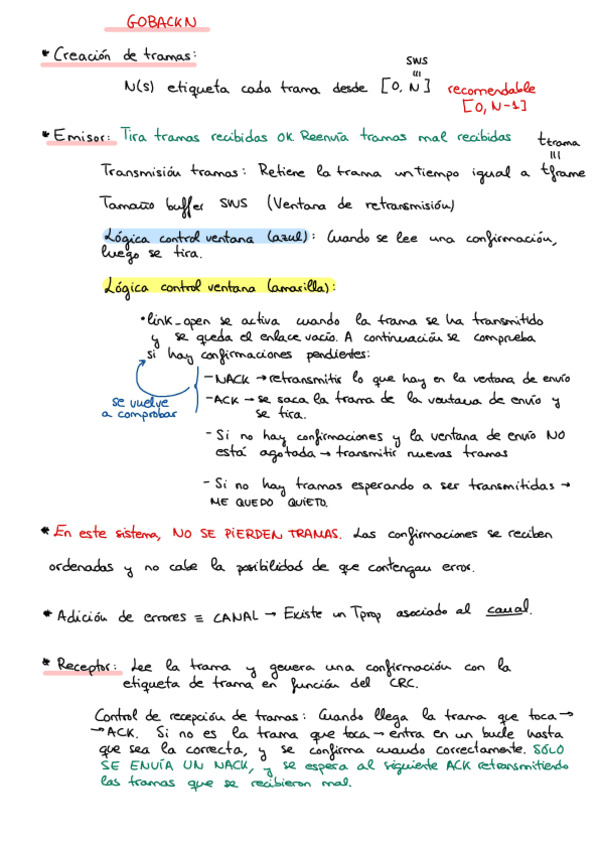 GOBACKN
* Creación de tramas:
SWS
N(s) etiqueta cada trama desde [0, N] recomendable
[0, N-1]
* Emisor: Tira tramas recibidas OK. Reenvía tramas mal recibidas
t trama
Transmisión tramas: Retiene la trama un tiempo igual a tframe
Tamaño buffer SWS (Ventana de retransmisión)
Lógica control ventana (azul): Cuando se lee una confirmación,
luego se tira.
Lógica control ventana (amarilla):
• link_open se activa cuando la trama se ha transmitido
y se queda el enlace vacío. A continuación se comprueba
si hay confirmaciones pendientes:
- NACK → retransmitir lo que hay en la ventana de envío
- ACK → se saca la trama de la ventana de envío y
se tira.
se vuelve
a comprobar
- Si no hay confirmaciones y la ventana de envío NO
está agotada → transmitir nuevas tramas
- Si no hay tramas esperando a ser transmitidas →
ME QUEDO QUIETO.
* En este sistema, NO SE PIERDEN TRAMAS. Las confirmaciones se reciben
ordenadas y no cabe la posibilidad de que contengan error.
* Adición de errores ≡ CANAL → Existe un Tprop asociado al canal.
* Receptor: Lee la trama y genera una confirmación con la
etiqueta de trama, en función del CRC.
Control de recepción de tramas: Cuando llega la trama que toca →
→ ACK. Si no es la trama que toca → entra en un bucle hasta
que sea la correcta, y se confirma cuando correctamente. SOLO
SE ENVÍA UN NACK, y se espera al siguiente ACK retransmitiendo
las tramas que se recibieron mal.